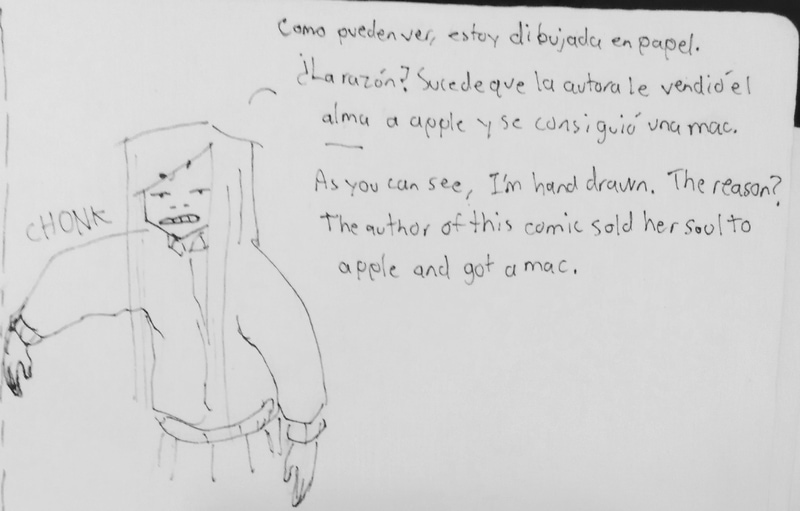 Como pueden ver, estoy dibujada en papel.
¿La razón? Sucede que la autora le vendió el
alma a apple y se consiguió una mac.
As you can see, I'm hand drawn. The reason?
The author of this comic sold her soul to
apple and got a mac.
CHONK